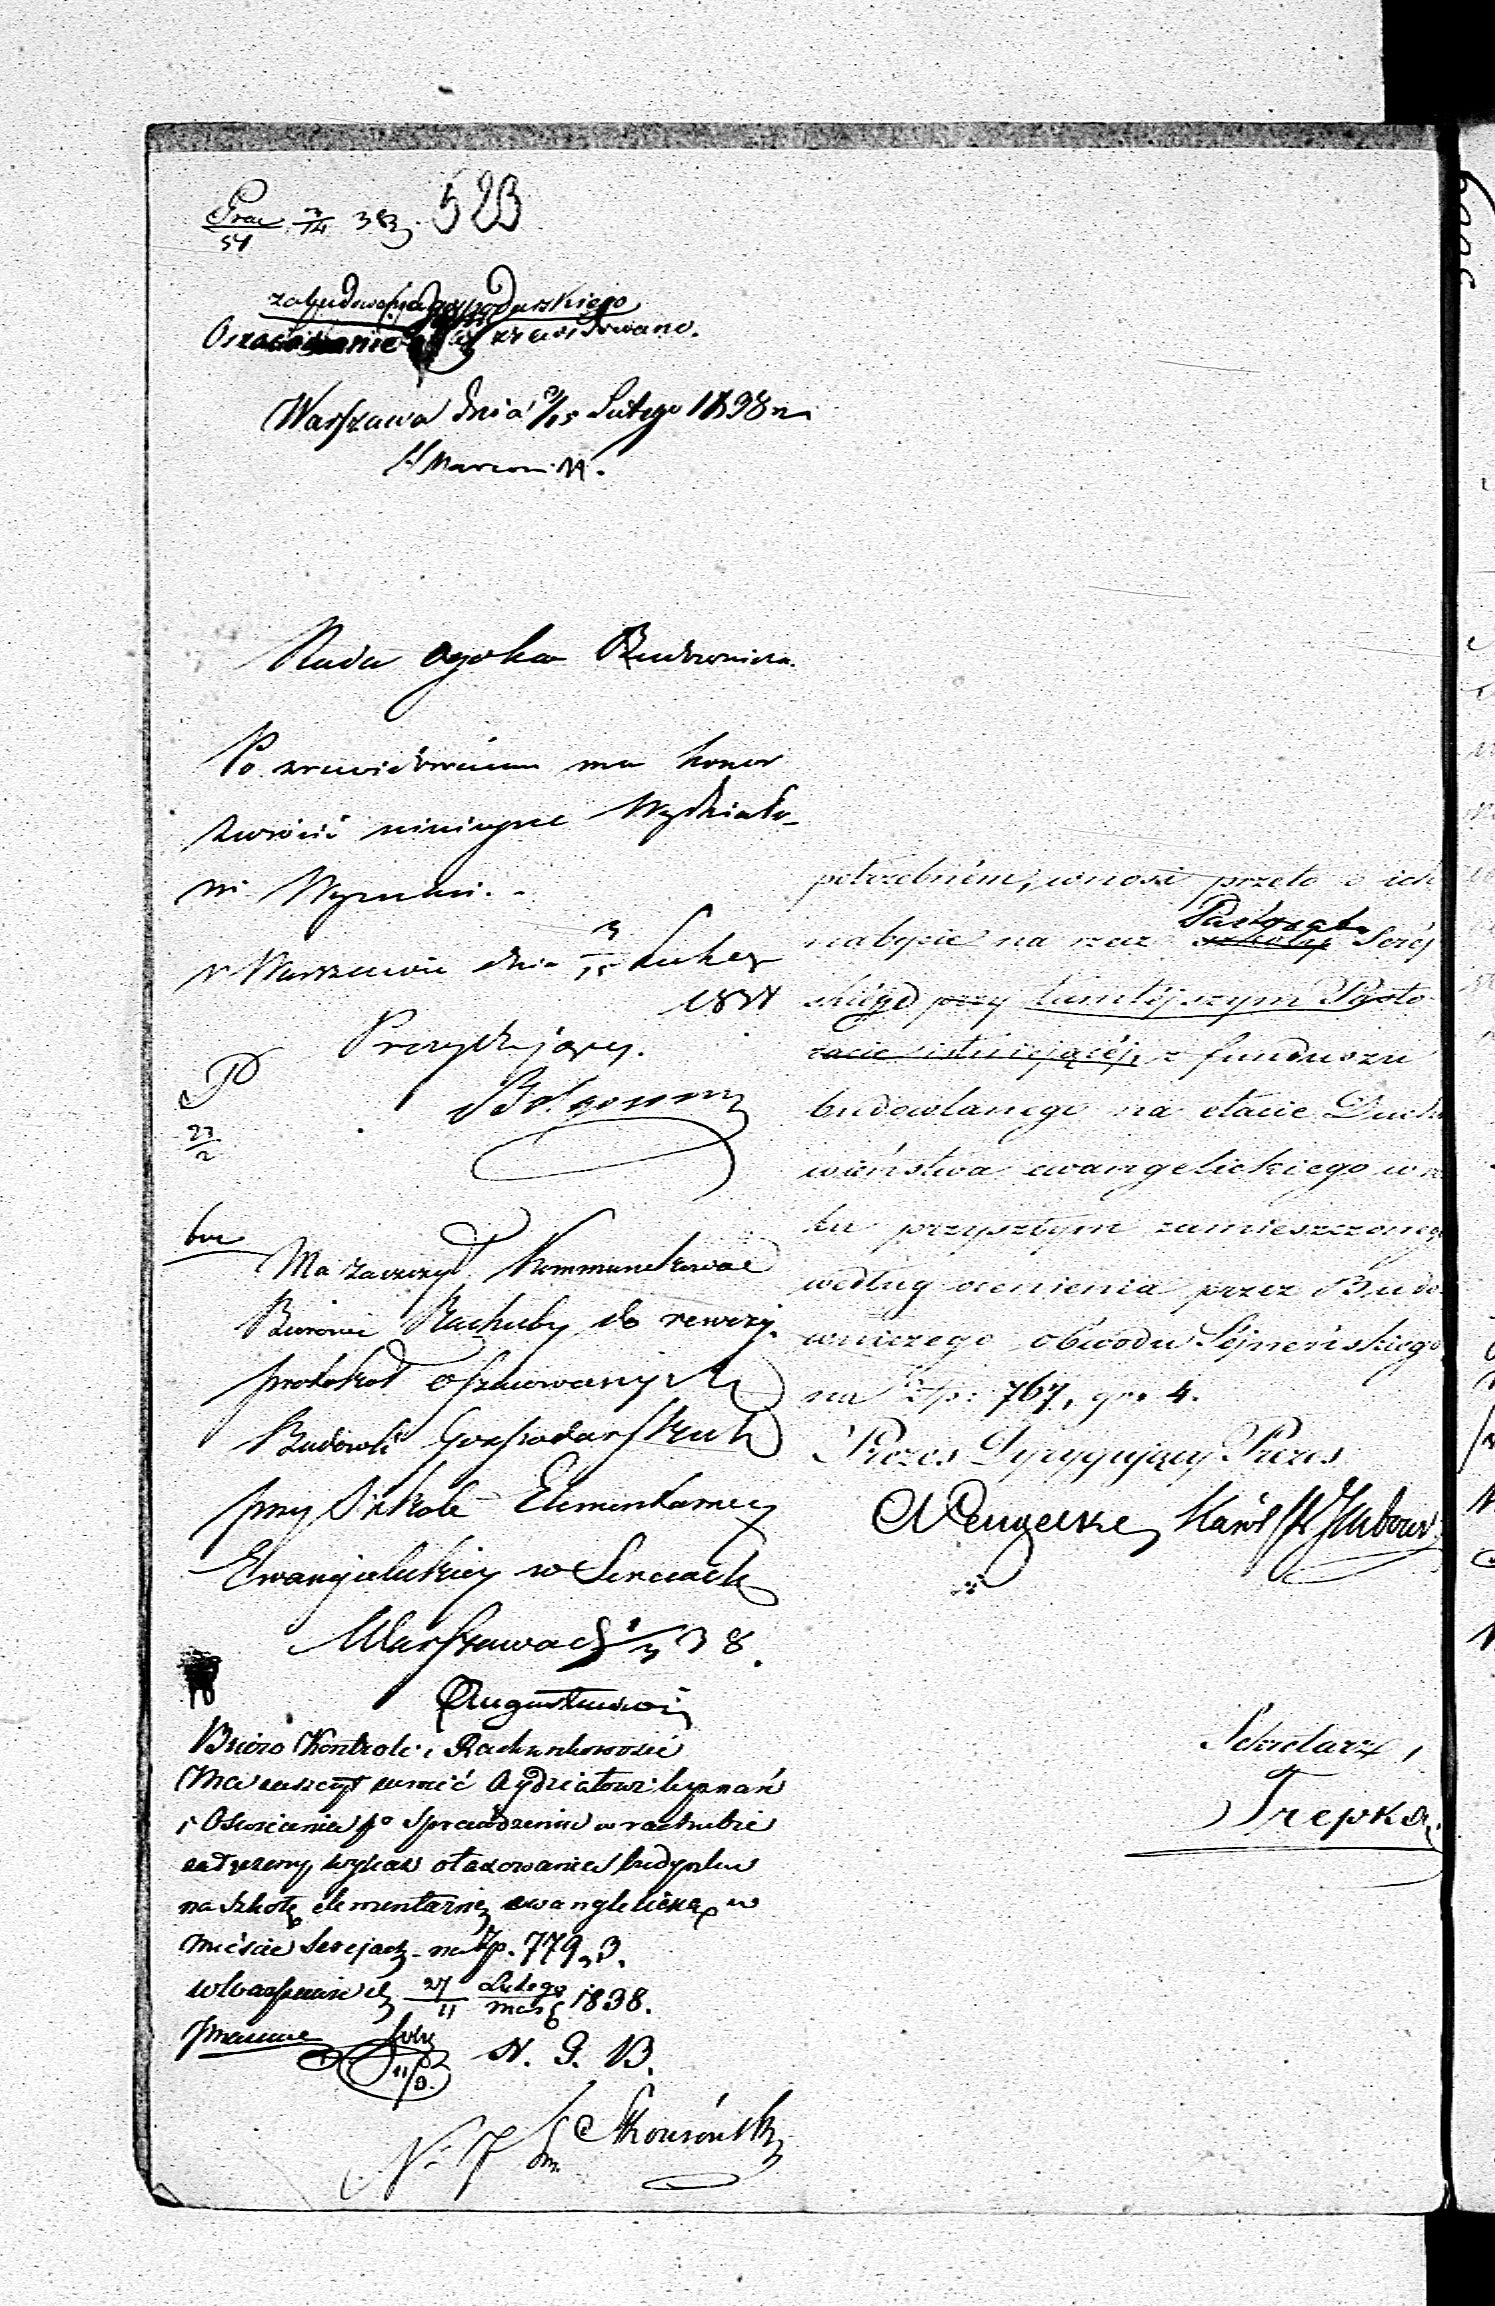 523
zabudowania gospodarskiego
zrewidowano.
Warszawa dnia 3/15 Lutego 1838 r.
H Marconi
Rada ogólna Budownicza
Po zrewidowaniu ma honor
zwrócić niniejsze Wydziało-
wi Wyznań.
w Warszawie dnia 3/15 Lutego
1838
Prezydujący.
P
27/2
Ma zaszczyt Kommunikować
Biurowi Rachuby do rewizyi
protokół oszacowanych
Budowli Gospodarskich
przy Szkole Elementarnej
Ewangielickiej w Sereiach
Warszawa d 38.
Biuro Kontroli i Rachunkowości
Ma zaszczyt zwrócić Wydziałowi Wyznań
i Oświecenia po sprawdzeniu w rachubie
załączony wykaz otaxowania budynku
na szkołę elementarną ewangelicką w
mieście Serejach na Zp. 779 3.
w Warszawie d 27/11 Lutego/Marca 1838.
N. G. B.
potrzebném, wnosi przeto o ich
nabycie na rzecz szkoły Pastoratu Serej
skiego przy tamtéjszym Pasto-
racie istniejącéj, z funduszu
budowlanego na etacie Ducho
wieństwa ewangelickiego w ro
ku przyszłym zamieszczonego
według ocenienia przez Budo
wniczego obwodu Sejneńskiego
na Zp: 767, gr. 4.
Prezes Dyrygujący Prezes
Sekretarz,
Trepka.